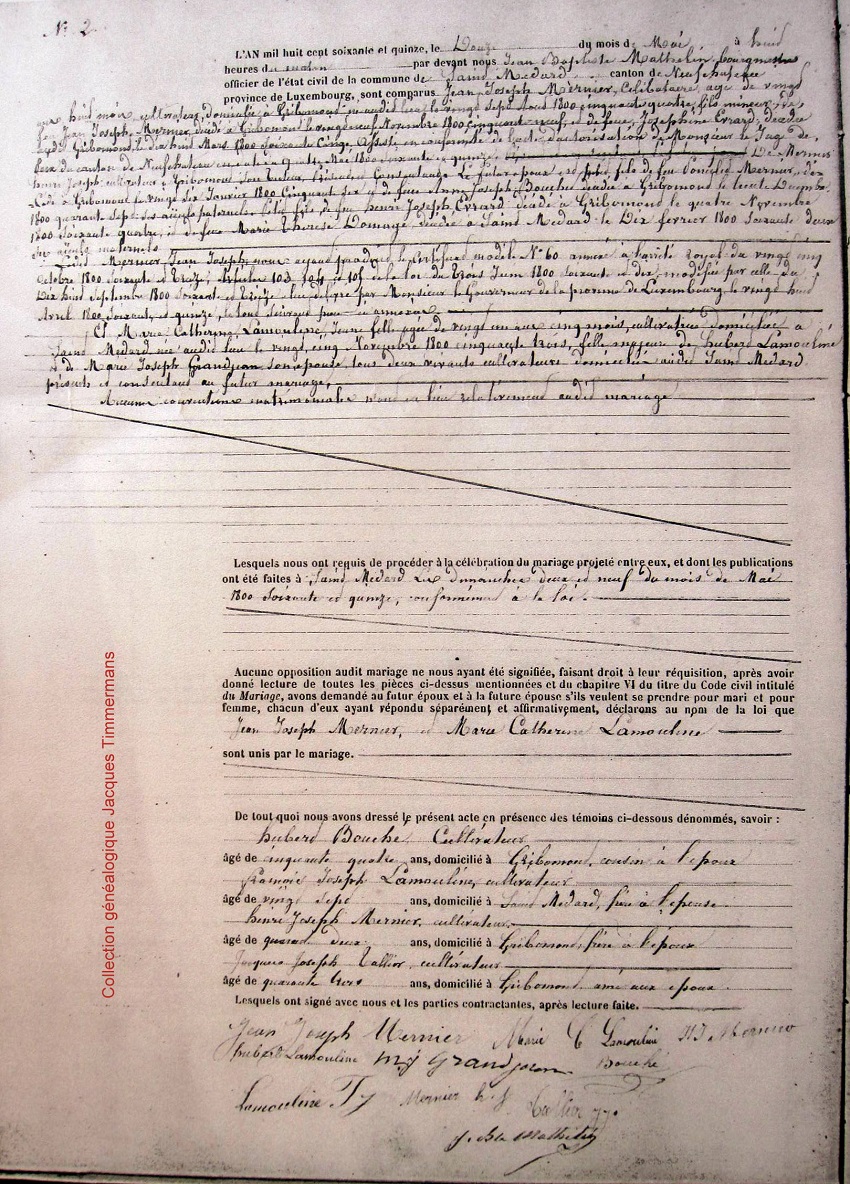 N° 2
L'AN mil huit cent soixante et quinze, le Douze du mois de Mai à huit
heures du matin par devant nous Jean Baptiste Mathelin, bourgmestre
officier de l'état civil de la commune de Saint Medard canton de Neufchateau
province de Luxembourg, sont comparus Jean Joseph Mernier, Célibataire, agé de vingt
ans huit mois, cultivateur, domicilié à Gribomont né audit lieu le vingt sept Août 1800 cinquante quatre, fils mineur de
feu Jean Joseph Mernier, décédé à Gribomont le vingt neuf Novembre 1800 cinquante neuf, et de feue Joséphine Evrard, décédée
audit Gribomont le dix huit Mars 1800 Soixante Cinq. Assisté en conformité de l'acte d'autorisation de Monsieur le Juge de
Paix du canton de Neufchateau en date du quatre Mai 1800 soixante et quinze, De Mernier
henri Joseph cultivateur à Gribomont Son Tuteur, présent et Consentant. Le futur époux est petit fils de feu Mernier,
décédé à Gribomont le vingt des Janvier 1800 Cinquante et de feue Anne Joseph Bouché décédée à Gribomont le trente Décembre
1800 quarante Sept, ses aieuls paternels. Petit fils de feu henri Joseph Evrard décédé à Gribomont le quatre Novembre
1800 Soixante quatre, et de feue Marie Thérèse Domage, décédée à Saint Medard le Dix fevrier 1800 Soixante deux
ses aieuls maternels
Ledit Mernier Jean Joseph, nous ayant produit le Certificat modèle N° 60 annexé à l'arrêté royal du vingt cinq
octobre 1800 Soixante et treize, Articles 103, 104 et 105 de la loi du trois Juin 1800 Soixante et dix, modifiée par celle du
Dix huit Septembre 1800 Soixante et treize lui délivré par Monsieur le Gouverneur de la province de Luxembourg le vingt huit
Avril 1800 Soixante et quinze,
Et Marie Catherine Lamouline, Jeune fille agée de vingt un ans cinq mois, cultivatrice domiciliée à
Saint Medard née audit lieu le vingt cinq Novembre 1800 cinquante trois, fille majeure de hubert Lamouline
et de Marie Joseph Grandjean son épouse tous deux vivants cultivateurs domiciliés audit Saint Medard
présents et consentant au futur mariage,
Aucunes conventions matrimoniales n'ont eu lieu relativement audit mariage
Lesquels nous ont requis de procéder à la célébration du mariage projeté entre eux, et dont les publications
ont été faites à Saint Medard Les dimanches deux et neuf du mois de Mai
1800 Soixante et quinze, conformément à la loi.
Aucune opposition audit mariage ne nous ayant été signifiée, faisant droit à leur réquisition, après avoir
donné lecture de toutes les pièces ci-dessus mentionnées et du chapitre VI du titre du Code civil intitulé
du Mariage, avons demandé au futur époux et à la future épouse s'ils veulent se prendre pour mari et pour
femme, chacun d'eux ayant répondu séparément et affirmativement, déclarons au nom de la loi que
Jean Joseph Mernier, et Marie Catherine Lamouline
sont unis par le mariage.
De tout quoi nous avons dressé le présent acte en présence des témoins ci-dessous dénommés, savoir :
hubert Bouché Cultivateur
âgé de cinquante quatre ans, domicilié à Gribomont, cousin à l'epoux
François Joseph Lamouline, cultivateur
âgé de vingt sept ans, domicilié à Saint Medard, frère à l'epouse
henri Joseph Mernier, cultivateur,
âgé de quarante deux ans, domicilié à Gribomont, frère à l'epoux
Jacques Joseph Tallier, cultivateur
âgé de quarante trois ans, domicilié à Gribomont ami aux epoux
Lesquels ont signé avec nous et les parties contractantes, après lecture faite.
Jean Joseph Mernier Marie C Lamouline H J Mernier
hubert Lamouline m j Grandjean Bouché
Lamouline F j Mernier h. j Tallier j j.
J. Bte Mathelin
Collection généalogique Jacques Timmermans